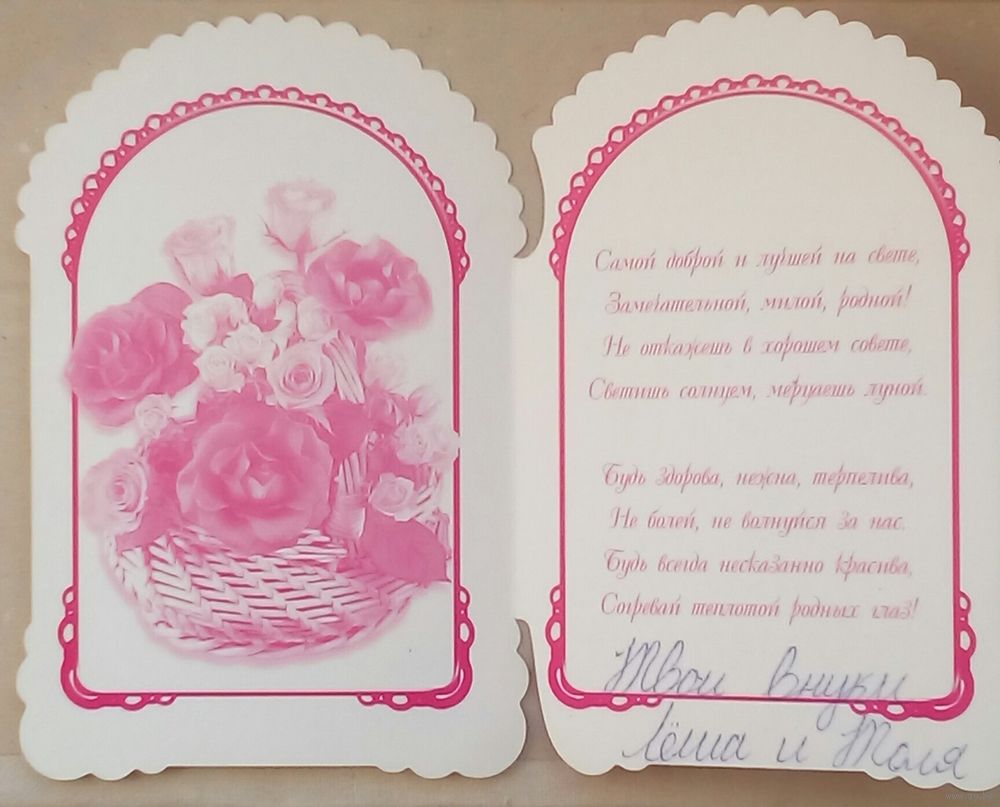 Самой доброй и лучшей на свете,
Замечательной, милой, родной!
Не откажешь в хорошем совете,
Светишь солнцем, мерцаешь луной.
Будь здорова, нежна, терпелива,
Не болей, не волнуйся за нас.
Будь всегда несказанно красива,
Согревай теплотой родных глаз!
Твои внуки
Лёша и Толя